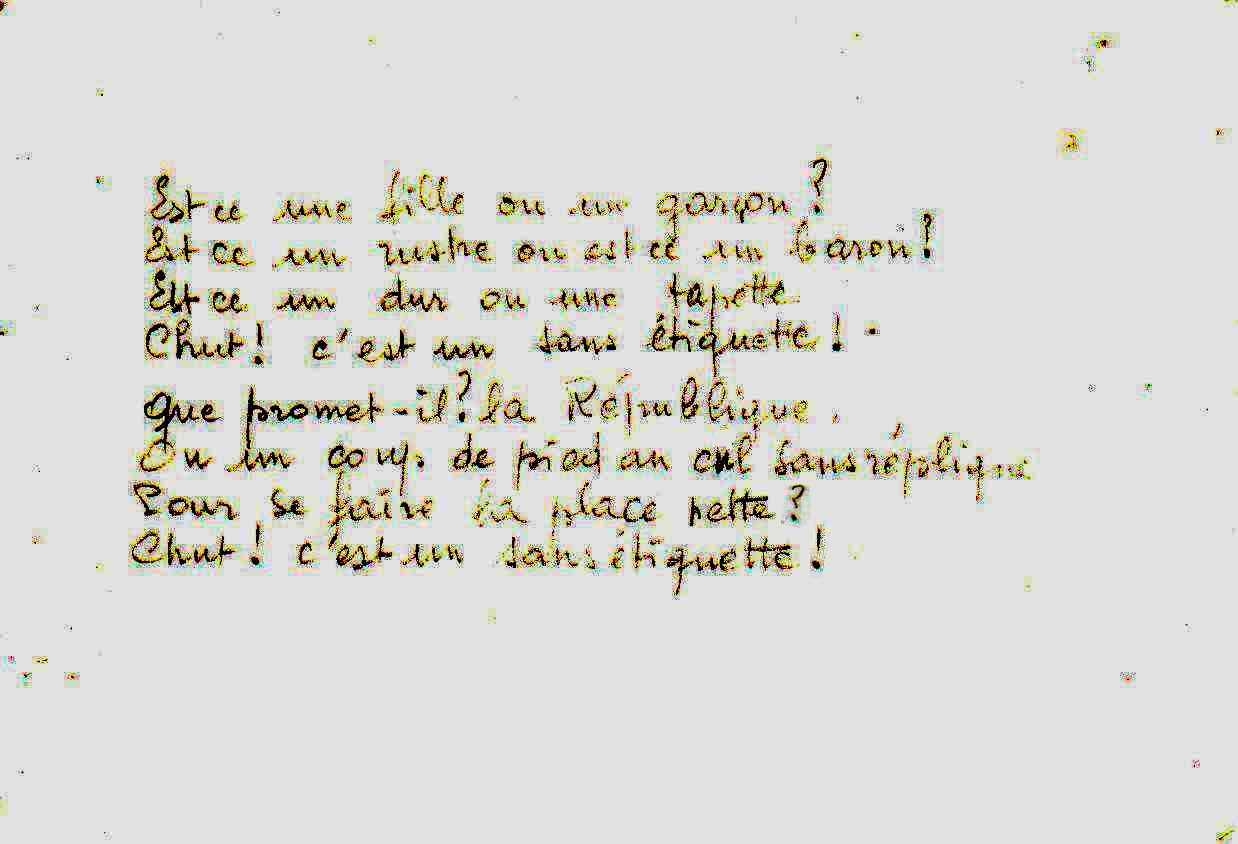 Est ce une fille ou un garçon?
Est ce un rustre ou est ce un baron!
Est ce un dur ou une tapette
Chut! c'est un sans étiquette!
Que promet-il? la République.
Ou un coup de pied au cul sans réplique
Pour se faire la place nette?
Chut! c'est un sans étiquette!